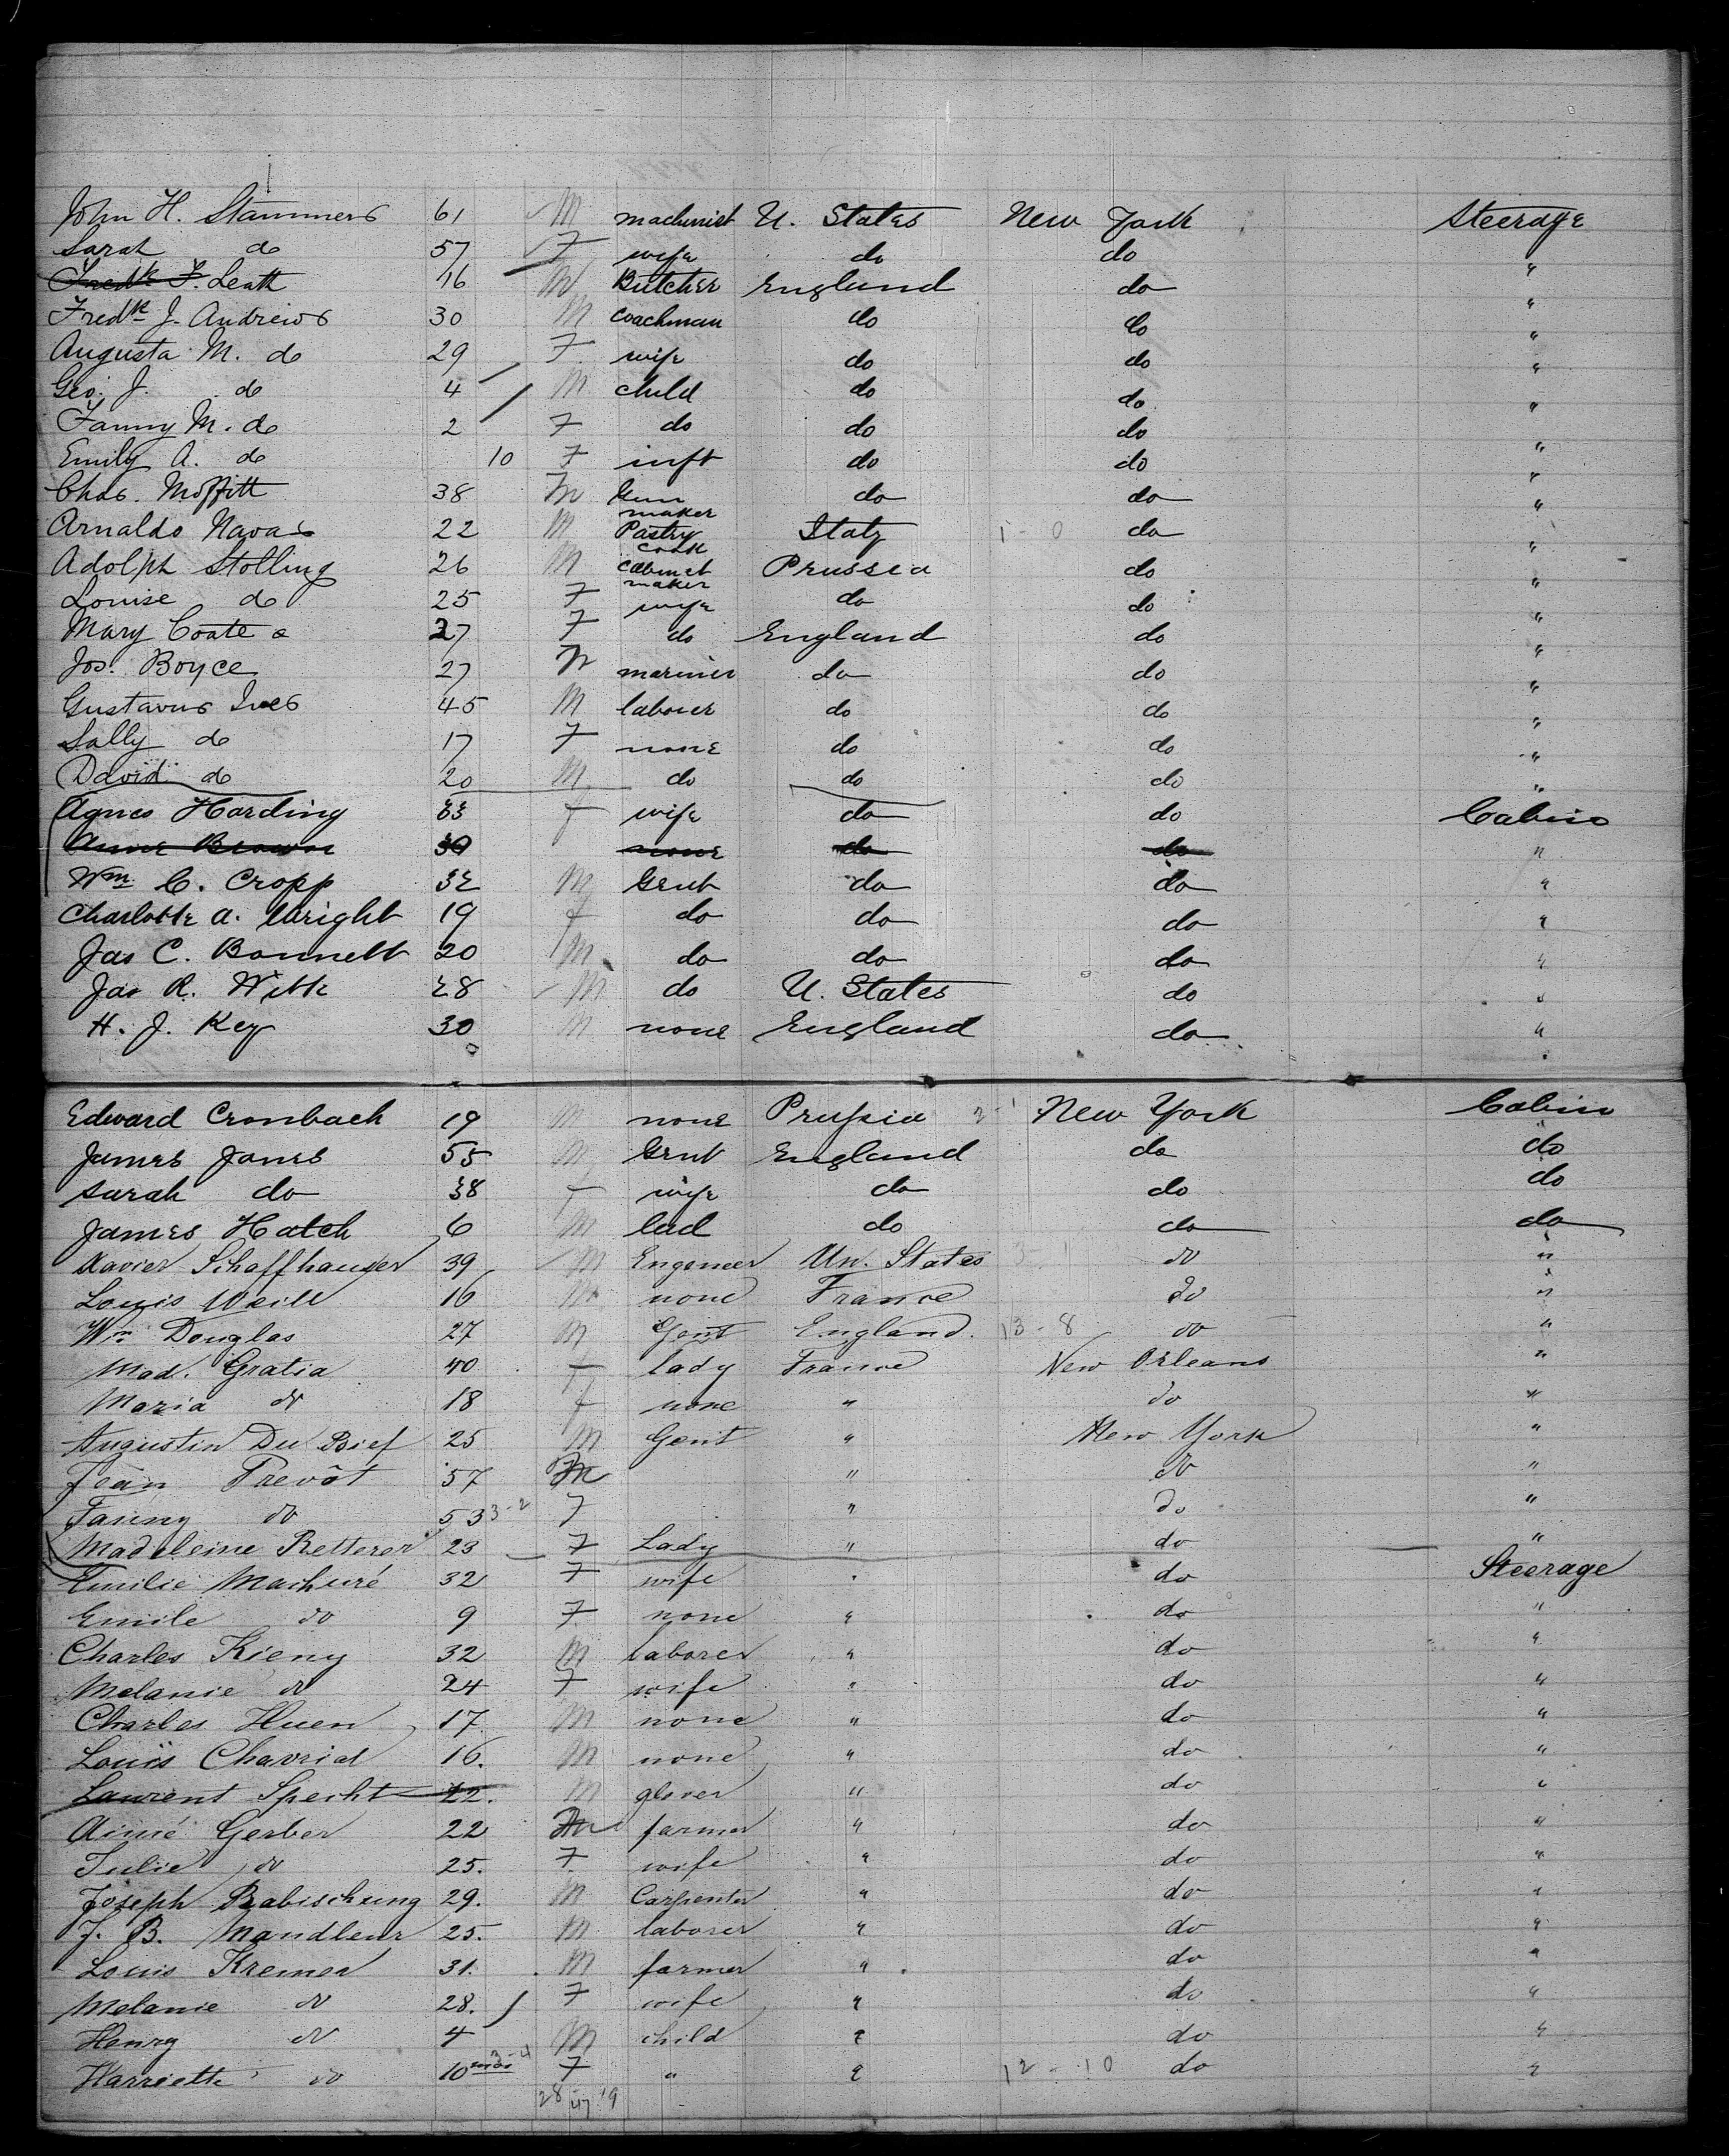 John H. Stammers 61 M machinist U. States New York Steerage
Sarah do 57 F wife do do "
Fredk F. Leath 16 M Butcher England do "
Fredk J. Andrews 30 M Coachman do do "
Augusta M. do 29 F wife do do "
Geo. J. do 4 M child do do "
Fanny M. do 2 F do do do "
Emily A. do 10 F inft do do "
Chas. Moffitt 38 M Gun maker do do "
Arnaldo Navas 22 M Pastry Cook Italy 1 - 0 do "
Adolph Stolling 26 M Cabinet maker Prussia do "
Louise do 25 F wife do do "
Mary Coate 27 F do England do "
Jos. Boyce 27 M mariner do do "
Gustavus Ives 45 M laborer do do "
Sally do 17 F none do do "
David do 20 M do do do "
Agnes Harding 33 F wife do do Cabin
Anne Brown 30 none do do "
Wm C. Cropp 32 M Gent do do "
Charlotte A. Wright 19 f do do do "
Jas C. Bonnett 20 M do do do "
Jas R. Witte 28 M do U. States do "
H. J. Key 30 M none England do "
Edward Cronbach 19 M none Prussia 2-1 New York Cabin
James Jones 55 M Gent England do do
Sarah do 38 F wife do do do
James Hatch 6 M lad do do do
Xavier Schaffhauser 39 M Engeneer Un. States 3-1 do "
Louis Weill 16 M none France do "
Wm Douglas 27 M Gent England. 13-8 do "
Mad. Gratia 40 F lady France New Orleans "
Maria do 18 f none " do "
Augustin Du Bief 25 M Gent " New York "
Jean Prevôt 57 M " do "
Fanny do 53 3-2 F " do "
Madeleine Retterer 23 F Lady " do "
Emilie Machuré 32 F wife " do Steerage
Emile do 9 F none " do "
Charles Kieny 32 M laborer " do "
Melanie do 24 F wife " do "
Charles Huen 17 M none " do "
Louis Chavriel 16. M none " do "
Laurent Specht 22. M glover " do "
Aimé Gerber 22 M farmer " do "
Julie do 25. F wife " do "
Joseph Babischung 29. M Carpenter " do "
J. B. Mandleur 25. M laborer " do "
Louis Kremer 31. M farmer " do "
Melanie do 28. F wife " do "
Henry do 4 M child " do "
Harriette do 10 mos 3-4 F " " 12-10 do "
28 47 19